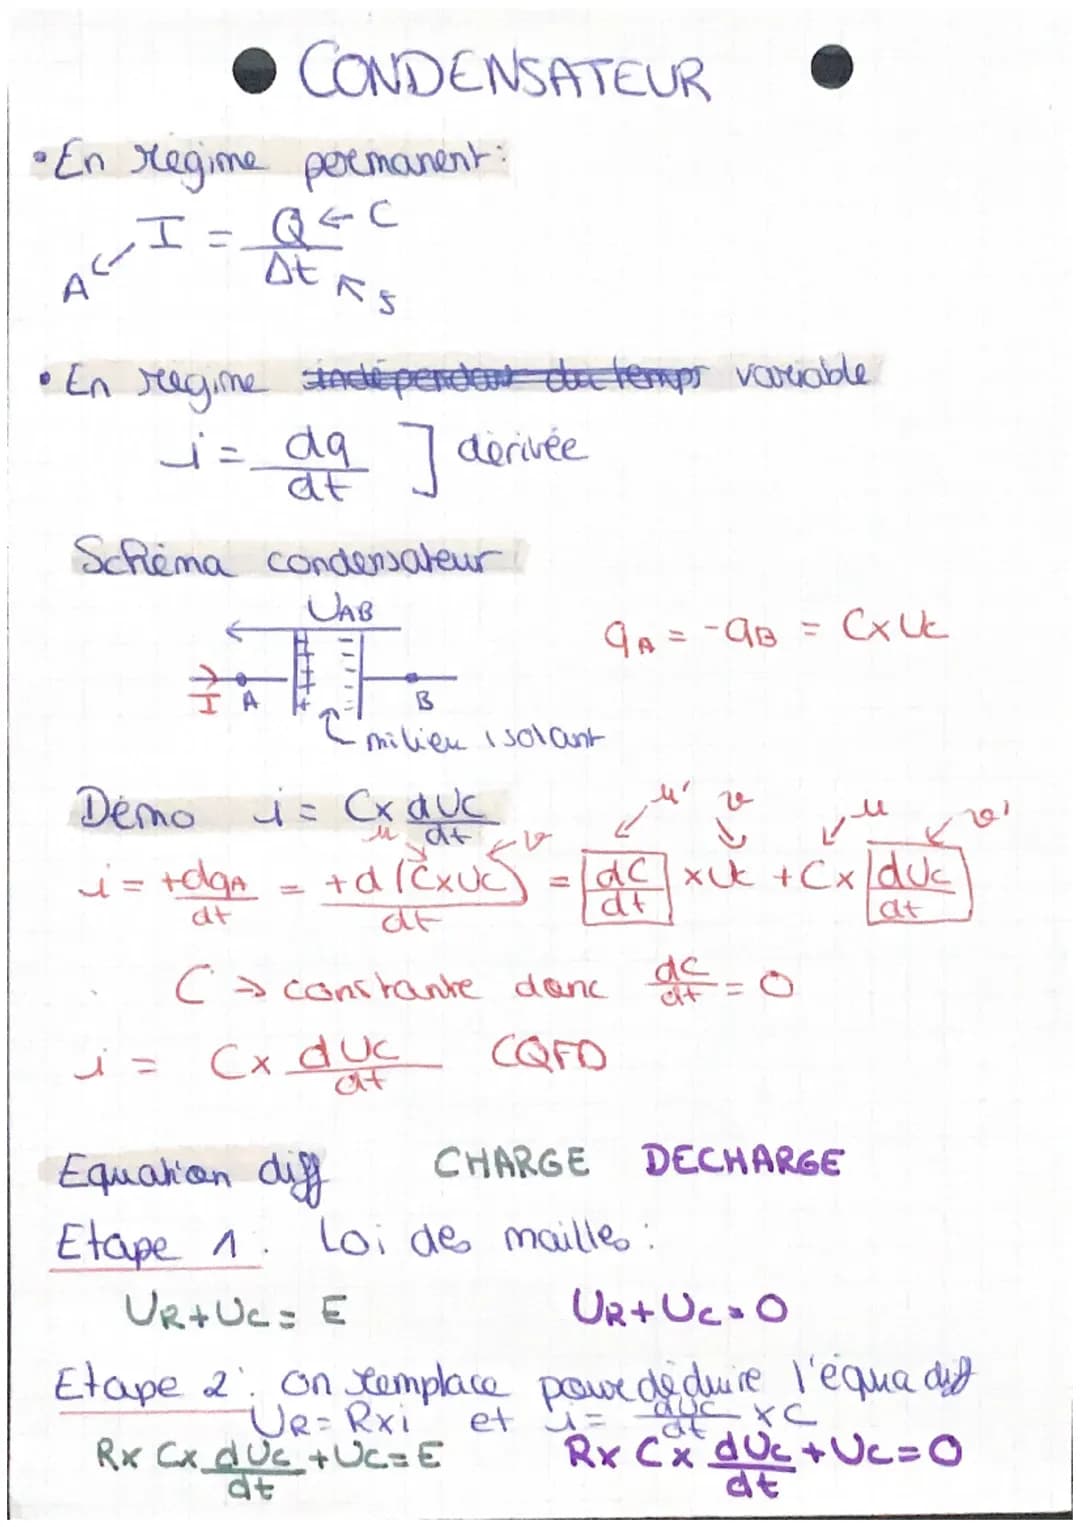 CONDENSATEUR
• En régime permanent:
I = Q ← C
A ↙ Δt ↖ s
• En régime indépendant du temps variable
i = dq/dt ] dérivée
Schéma condensateur
UAB
qA = -qB = C x Uc
I A B
milieu isolant
Démo i = C x dUc/dt
u v u' v u v'
i = +dqA/dt = +d(C x Uc)/dt = dC/dt x Uc + C x dUc/dt
C → constante donc dC/dt = 0
i = C x dUc/dt CQFD
Equation diff CHARGE DECHARGE
Etape 1: Loi des mailles:
UR + Uc = E UR + Uc = 0
Etape 2: on remplace pour déduire l'équa diff
UR = R x i et i = dUc/dt x C
R x C x dUc/dt + Uc = E R x C x dUc/dt + Uc = 0